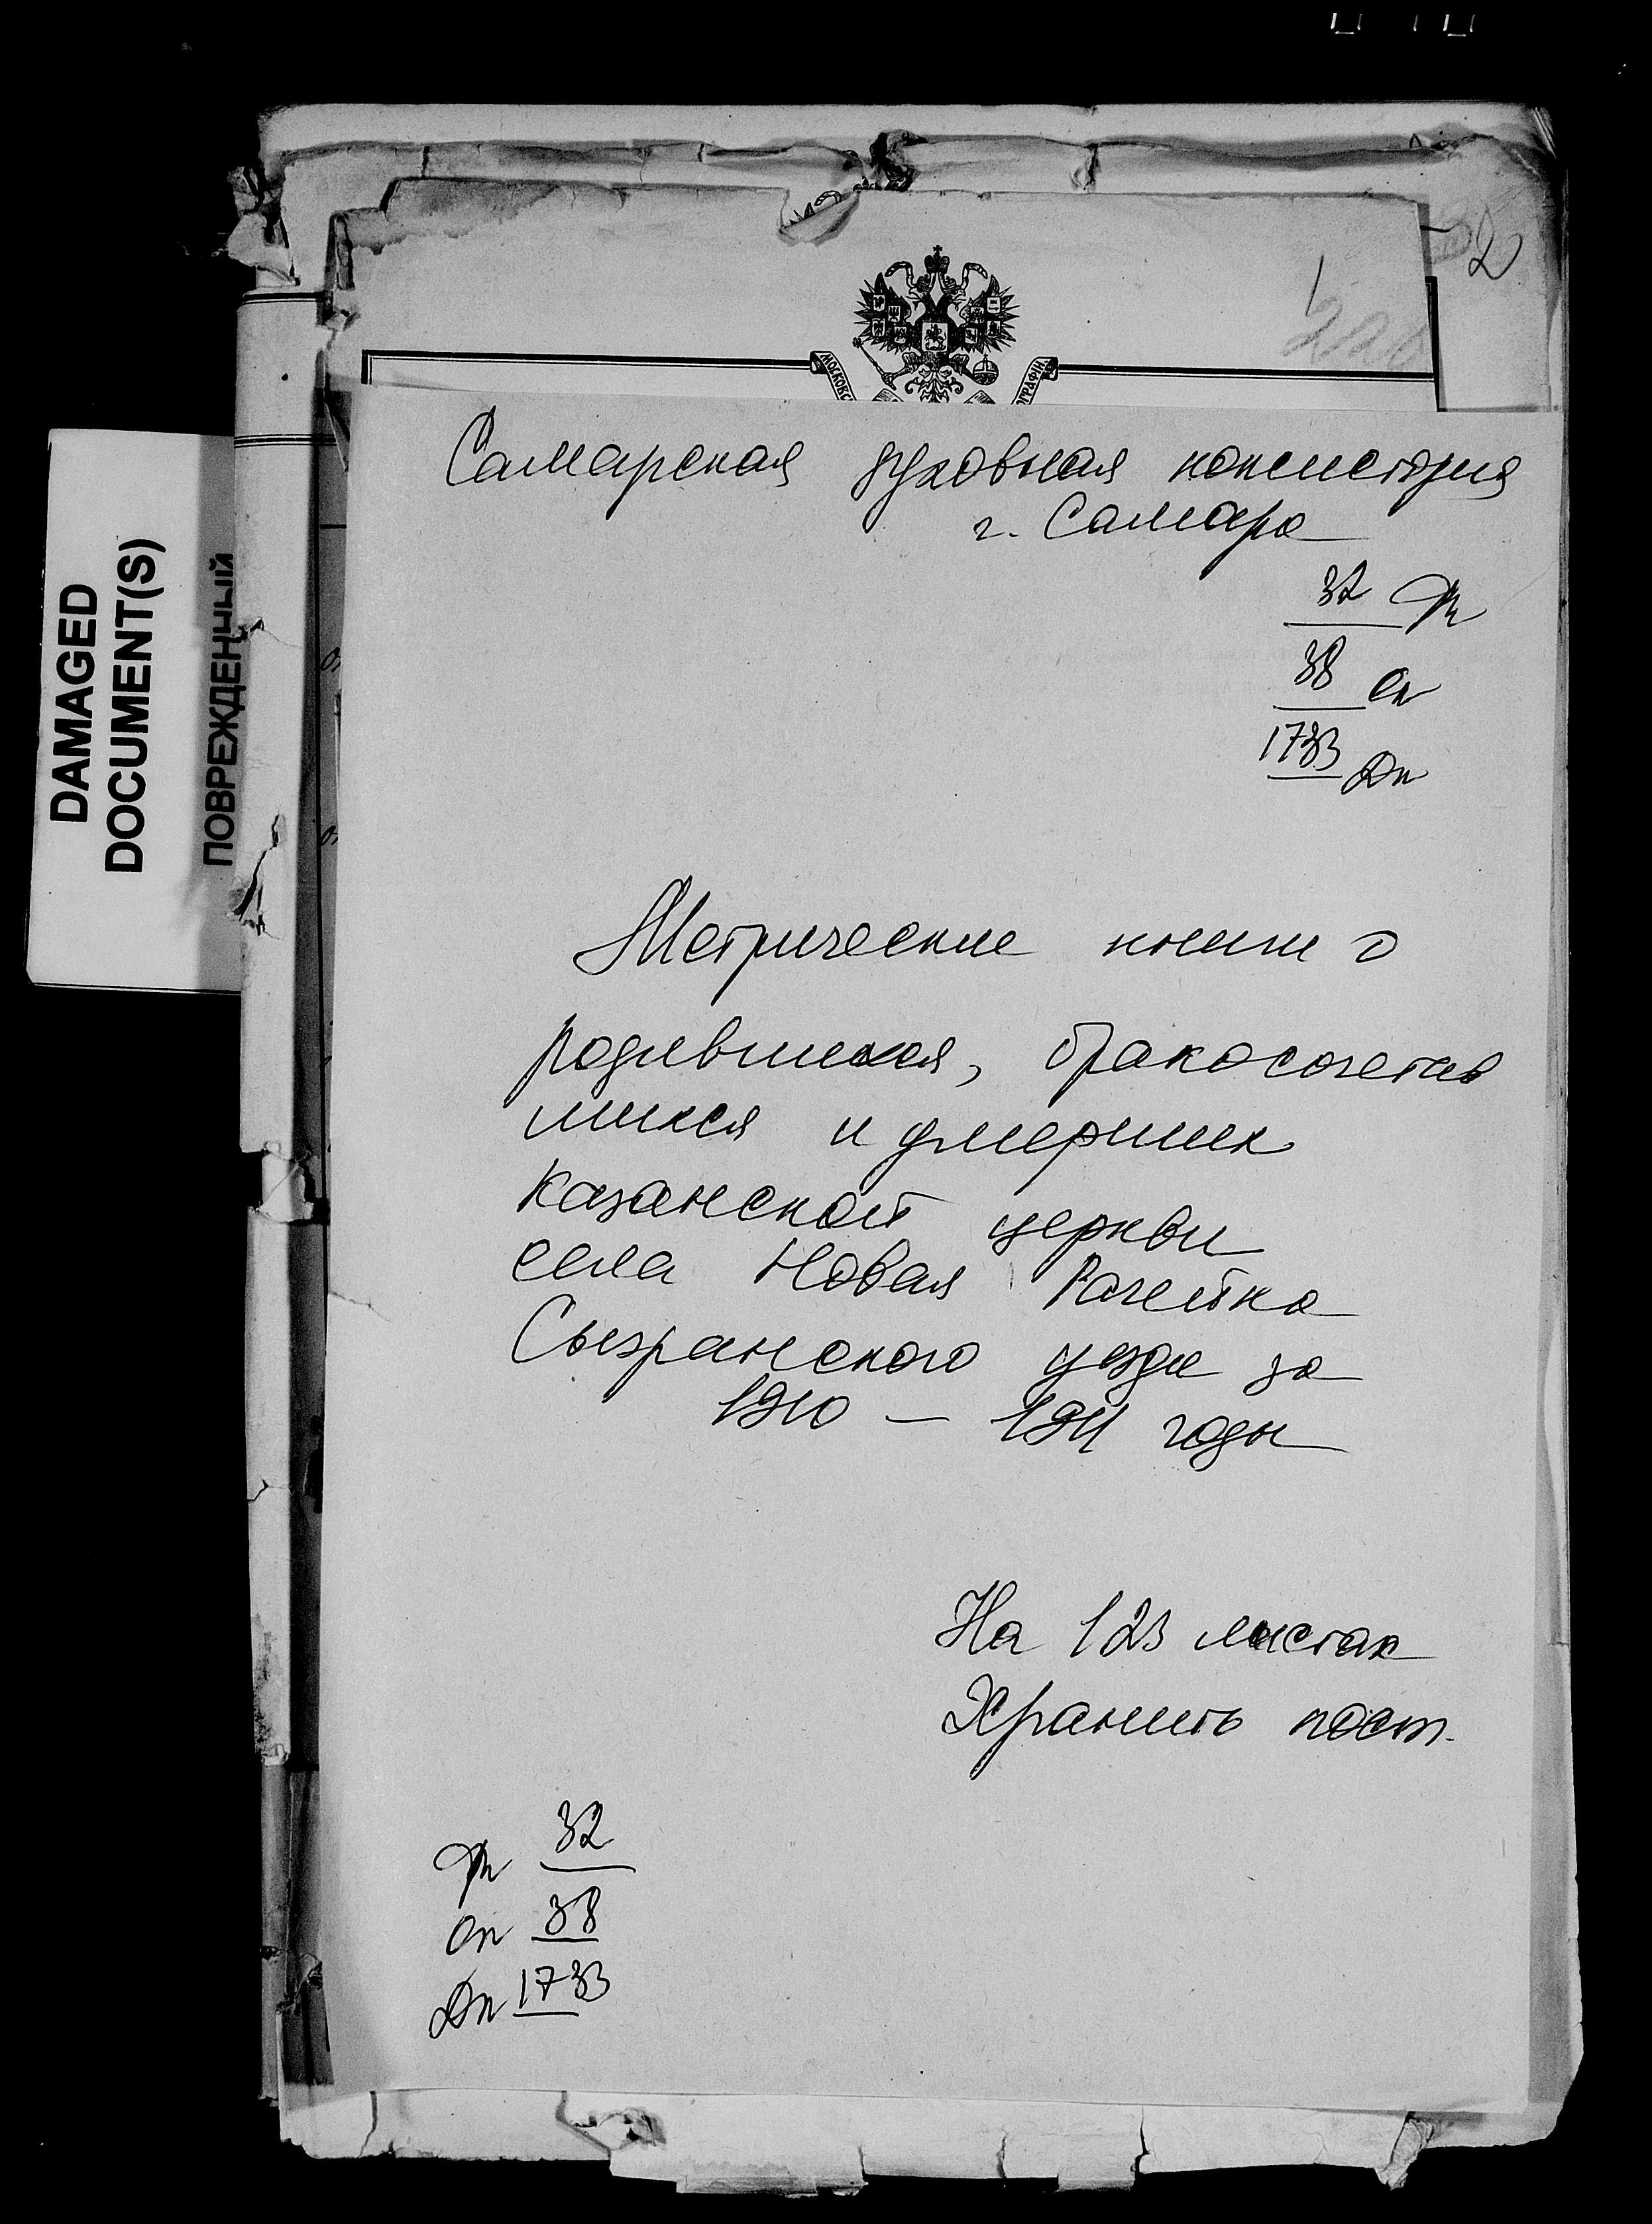 2
МОСКОВС
ОГРАФІЯ
DAMAGED
DOCUMENT(S)
ПОВРЕЖДЕННЫЙ
Самарская духовная консистория
г. Самара
32 Ф
38 Оп
1733 Дп
Метрические книги о
родившихся, бракосочетав
шихся и умерших
Казанской церкви
села Новая Рачейка
Сызранского уезда за
1910 — 1911 годы
На 123 листах
Хранить пост.
Ф 32
Оп 38
Дп 1733